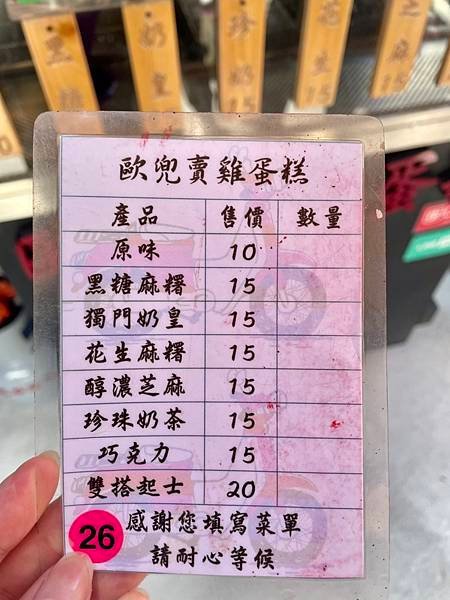 黑糖
奶皇
珍奶
15
花生
15
芝麻
15
歐兜賣雞蛋糕
產品 售價 數量
原味 10
黑糖麻糬 15
獨門奶皇 15
花生麻糬 15
醇濃芝麻 15
珍珠奶茶 15
巧克力 15
雙搭起士 20
感謝您填寫菜單
26
請耐心等候